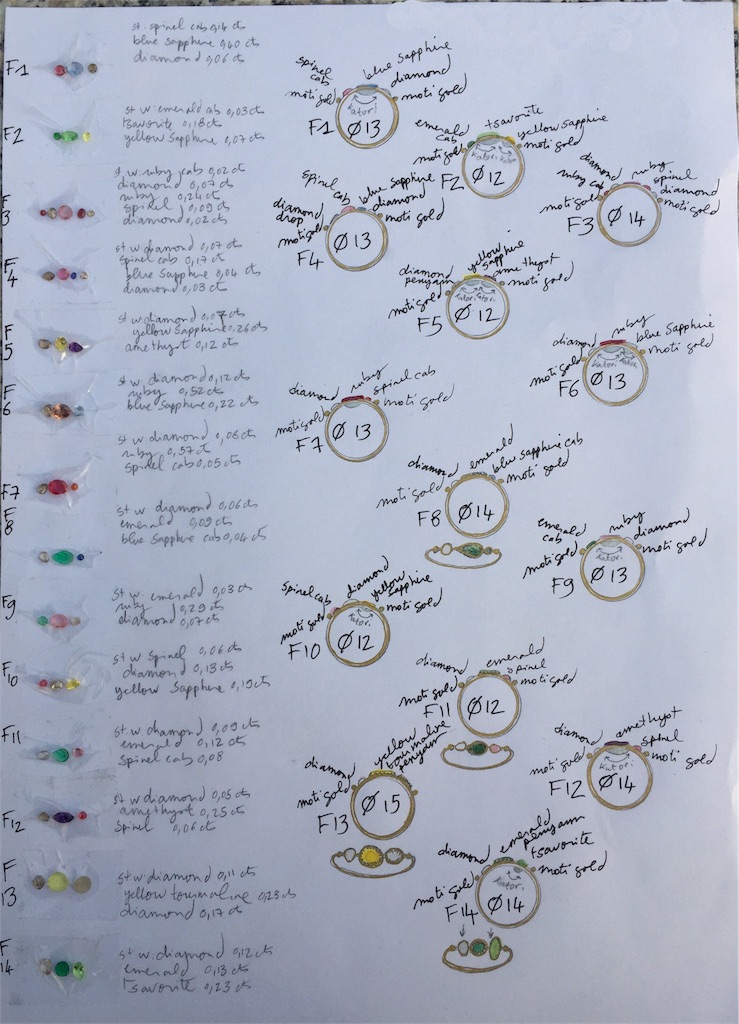 F1
st. spinel cab 0,14 cts
blue sapphire 0,40 cts
diamond 0,06 cts
F2
st w. emerald cab 0,03 cts
tsavorite 0,18 cts
yellow Sapphire 0,07 cts
F
3
st. w. ruby cab 0,02 cts
diamond 0,07 cts
ruby 0,24 cts
spinel 0,09 cts
diamond 0,02 cts
F
4
st w diamond 0,07 cts
spinel cab 0,17 cts
blue Sapphire 0,04 cts
diamond 0,03 cts
F
5
st w. diamond 0,07 cts
yellow sapphire 0,26 cts
amethyst 0,12 cts
F
6
st w. diamond 0,12 cts
ruby 0,52 cts
blue sapphire 0,22 cts
F7
st w. diamond 0,06 cts
ruby 0,37 cts
spinel cab 0,05 cts
F
8
st w diamond 0,06 cts
emerald 0,09 cts
blue sapphire cab 0,04 cts
F9
st w. emerald 0,03 cts
ruby 0,29 cts
diamond 0,07 cts
F10
st w Spinel 0,06 cts
diamond 0,13 cts
yellow Sapphire 0,19 cts
F11
st. w. diamond 0,09 cts
emerald 0,12 cts
Spinel cab 0,08
F12
st w. diamond 0,05 cts
amethyst 0,25 cts
spinel 0,06 cts
F
13
st w diamond 0,11 cts
yellow tourmaline 0,23 cts
diamond 0,17 cts
F
14
st w. diamond 0,12 cts
emerald 0,13 cts
Tsavorite 0,23 cts
spinel
cab
blue sapphire
diamond
moti gold
moti gold
Katori
F1
Ø13
emerald
cab
tsavorite
yellow sapphire
moti gold
moti gold
Katori
F2
Ø12
diamond
ruby
ruby cab
spinel
diamond
moti gold
moti gold
F3
Ø14
spinel
cab
blue sapphire
diamond
diamond
drop
moti gold
moti gold
F4
Ø13
diamond
yellow
sapphire
amethyst
moti gold
moti gold
Katori
Katori
F5
Ø12
diamond
ruby
blue Sapphire
moti gold
moti gold
Katori
Katori
F6
Ø13
diamond
ruby
spinel cab
moti gold
moti gold
F7
Ø13
diamond
emerald
blue sapphire cab
moti gold
moti gold
F8
Ø14
emerald
cab
ruby
diamond
moti gold
moti gold
Katori
F9
Ø13
Spinel cab
diamond
yellow
Sapphire
moti gold
moti gold
F10
Ø12
diamond
emerald
spinel
moti gold
moti gold
F11
Ø12
diamond
amethyst
spinel
moti gold
moti gold
Katori
F12
Ø14
diamond
yellow
tourmaline
moti gold
F13
Ø15
diamond
emerald
tsavorite
moti gold
moti gold
Katori
F14
Ø14